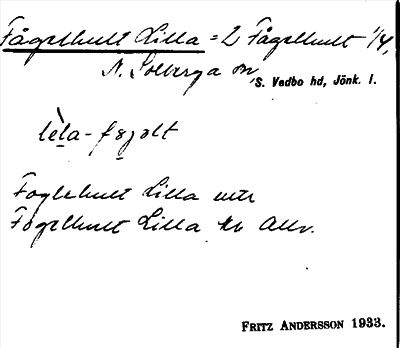 Fågelhult Lilla = 2 Fågelhult 1/4,
N. Solberga sn,
S. Vedbo hd, Jönk. l.
lèla-fojolt
Foglehult Lilla
Fogelhult Lilla
FRITZ ANDERSSON 1933.